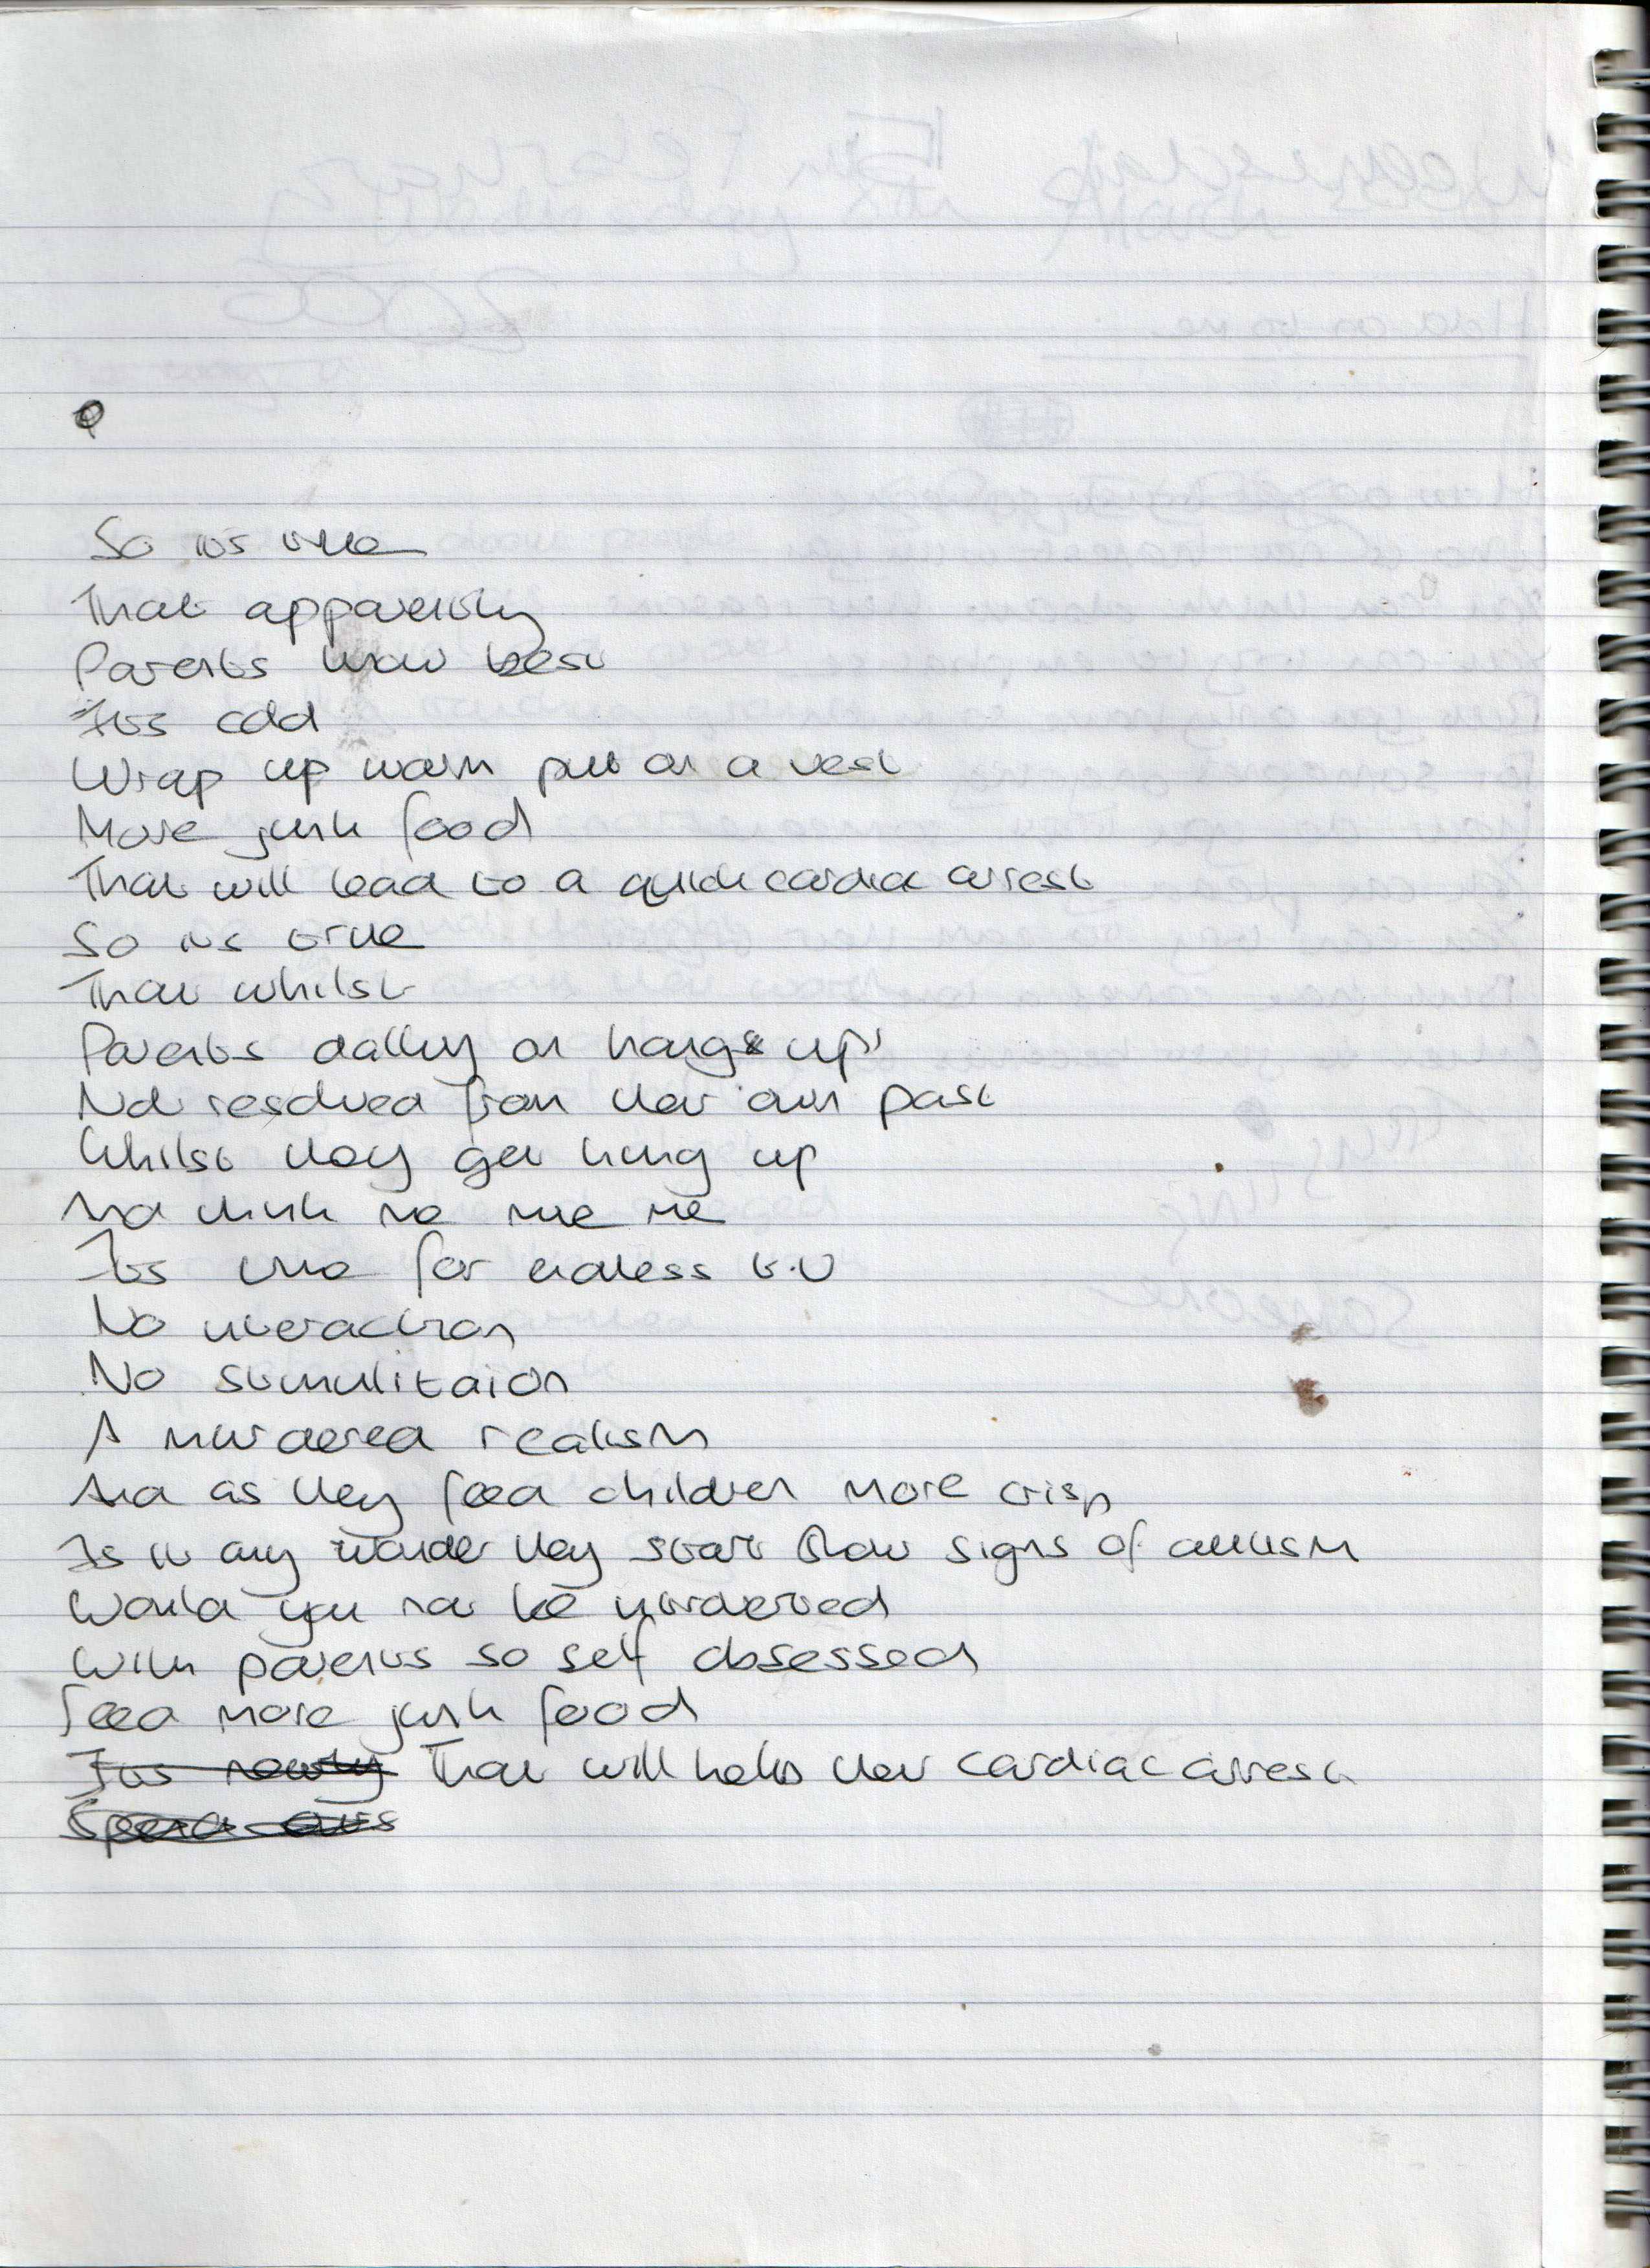 So its true
That apparently
Parents know best
Its cold
Wrap up warm put on a vest
More junk food
That will lead to a quick cardiac arrest
So its true
That whilst
Parents dalley on hangs up's
Not resolved from their own past
Whilst they get hung up
And think me me me
Its time for endless t.v
No interaction
No stimulitaion
A murdered realism
And as they feed children more crisp
Is it any wonder they start show signs of autism
Would you not be
With parents so self obsessed
Feed more junk food
That will help their cardiac arrest